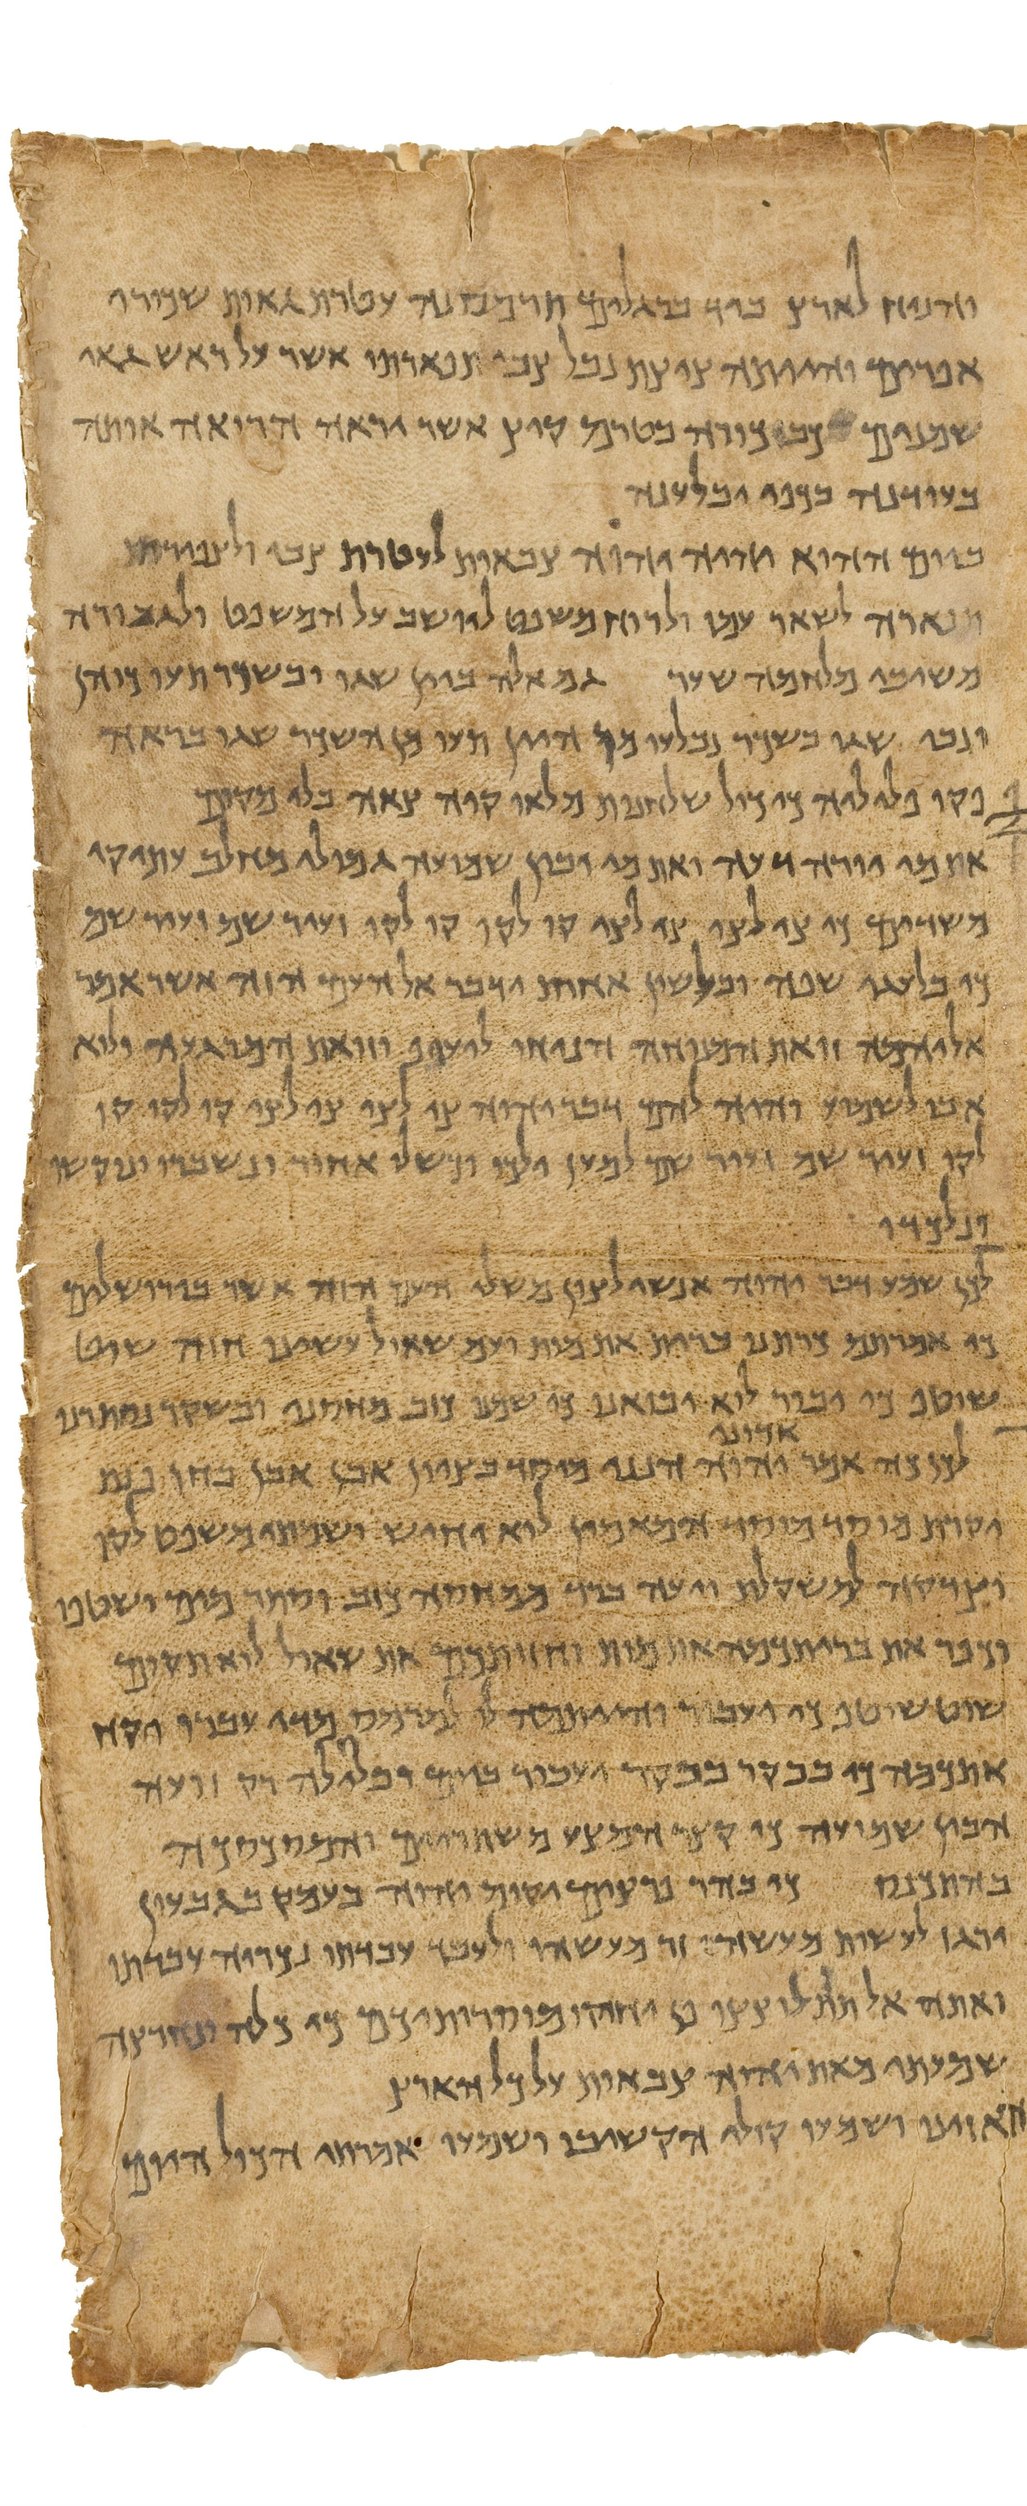 והניח לארץ ביד ברגלים תרמסנה עטרת גאות שכורי
אפרים והייתה ציצת נבל צבי תפארתו אשר על ראש גאי
שמנים כבכורה בטרם קיץ אשר יראה הרואה אותה
בעודנה בכפו יבלענה
ביום ההוא יהיה יהוה צבאות לעטרת צבי ולצפירת
תפארה לשאר עמו ולרוח משפט ליושב על המשפט ולגבורה
משיבי מלחמה שער גם אלה ביין שגו ובשכר תעו כוהן
ונבי שגו בשכר נבלעו מן היין תעו מן השכר שגו בראה
פקו פליליה כי כול שלחנות מלאו קיה צאה בלי מקום
את מי יורה דעה ואת מי יבין שמועה גמולי מחלב עתיקי
משדים כי צי לצי צי לצי קו לקו קו לקו ועיר שם ועיר שם
כי בלעגי שפה ובלשון אחרת ידבר אל העם הזה אשר אמר
אליהמה זואת המנוחה הניחו לעיף וזואת המרגעה ולוא
אבו לשמוע והיה להם דבר יהוה צי לצי צי לצי קו לקו קו
לקו ועיר שם ועיר שם למען ילכו וכשלו אחור ונשברו ונוקשו
ונלכדו
לכן שמעו דבר יהוה אנשי לצון משלי העם הזה אשר בירושלים
כי אמרתם כרתנו ברית את מות ועם שאול עשינו חזה שוט
שוטף כי יעבור לוא יבואנו כי שמנו כזב מחסנו ובשקר נסתרנו
אדוני
לכן כה אמר יהוה הנני מיסד בציון אבן אבן בחן פנת
יקרת מוסד מוסד המאמין לוא יחיש ושמתי משפט לקו
וצדקה למשקלת ויעה ברד מחסה כזב וסתר מים ישטפו
וכפר את בריתכמה את מות וחזותכם את שאול לוא תקום
שוט שוטף כי יעבור והייתמה לו למרמס מדי עברו יקח
אתכמה כי בבקר בבקר יעבור ביום ובלילה רק זועה
הבין שמועה כי קצר המצע משתריים והמסכסכה
כהתכנס כי כהר פרצים יקום יהוה בעמק בגבעון
ירגז לעשות מעשוהי זר מעשהו ולעבד עבדתו נכריה עבדתו
ואתה אל תתלוצצו פן יחזקו מוסרותיכם כי כלה ונחרצה
שמעתי מאת יהוה צבאות על כל הארץ
האזינו ושמעו קולי הקשיבו ושמעו אמרתי הכול היום